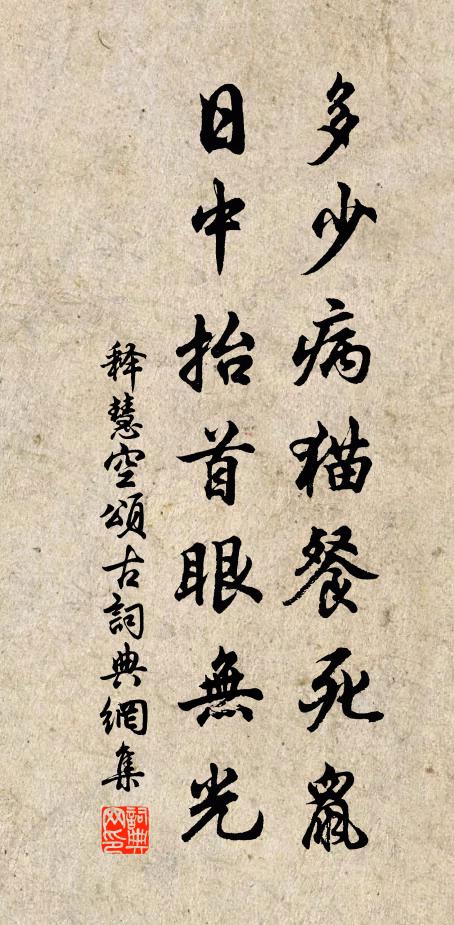 多少病猫餐死鼠
日中抬首眼無光
释慧空頌古詞典網集
詞典网印